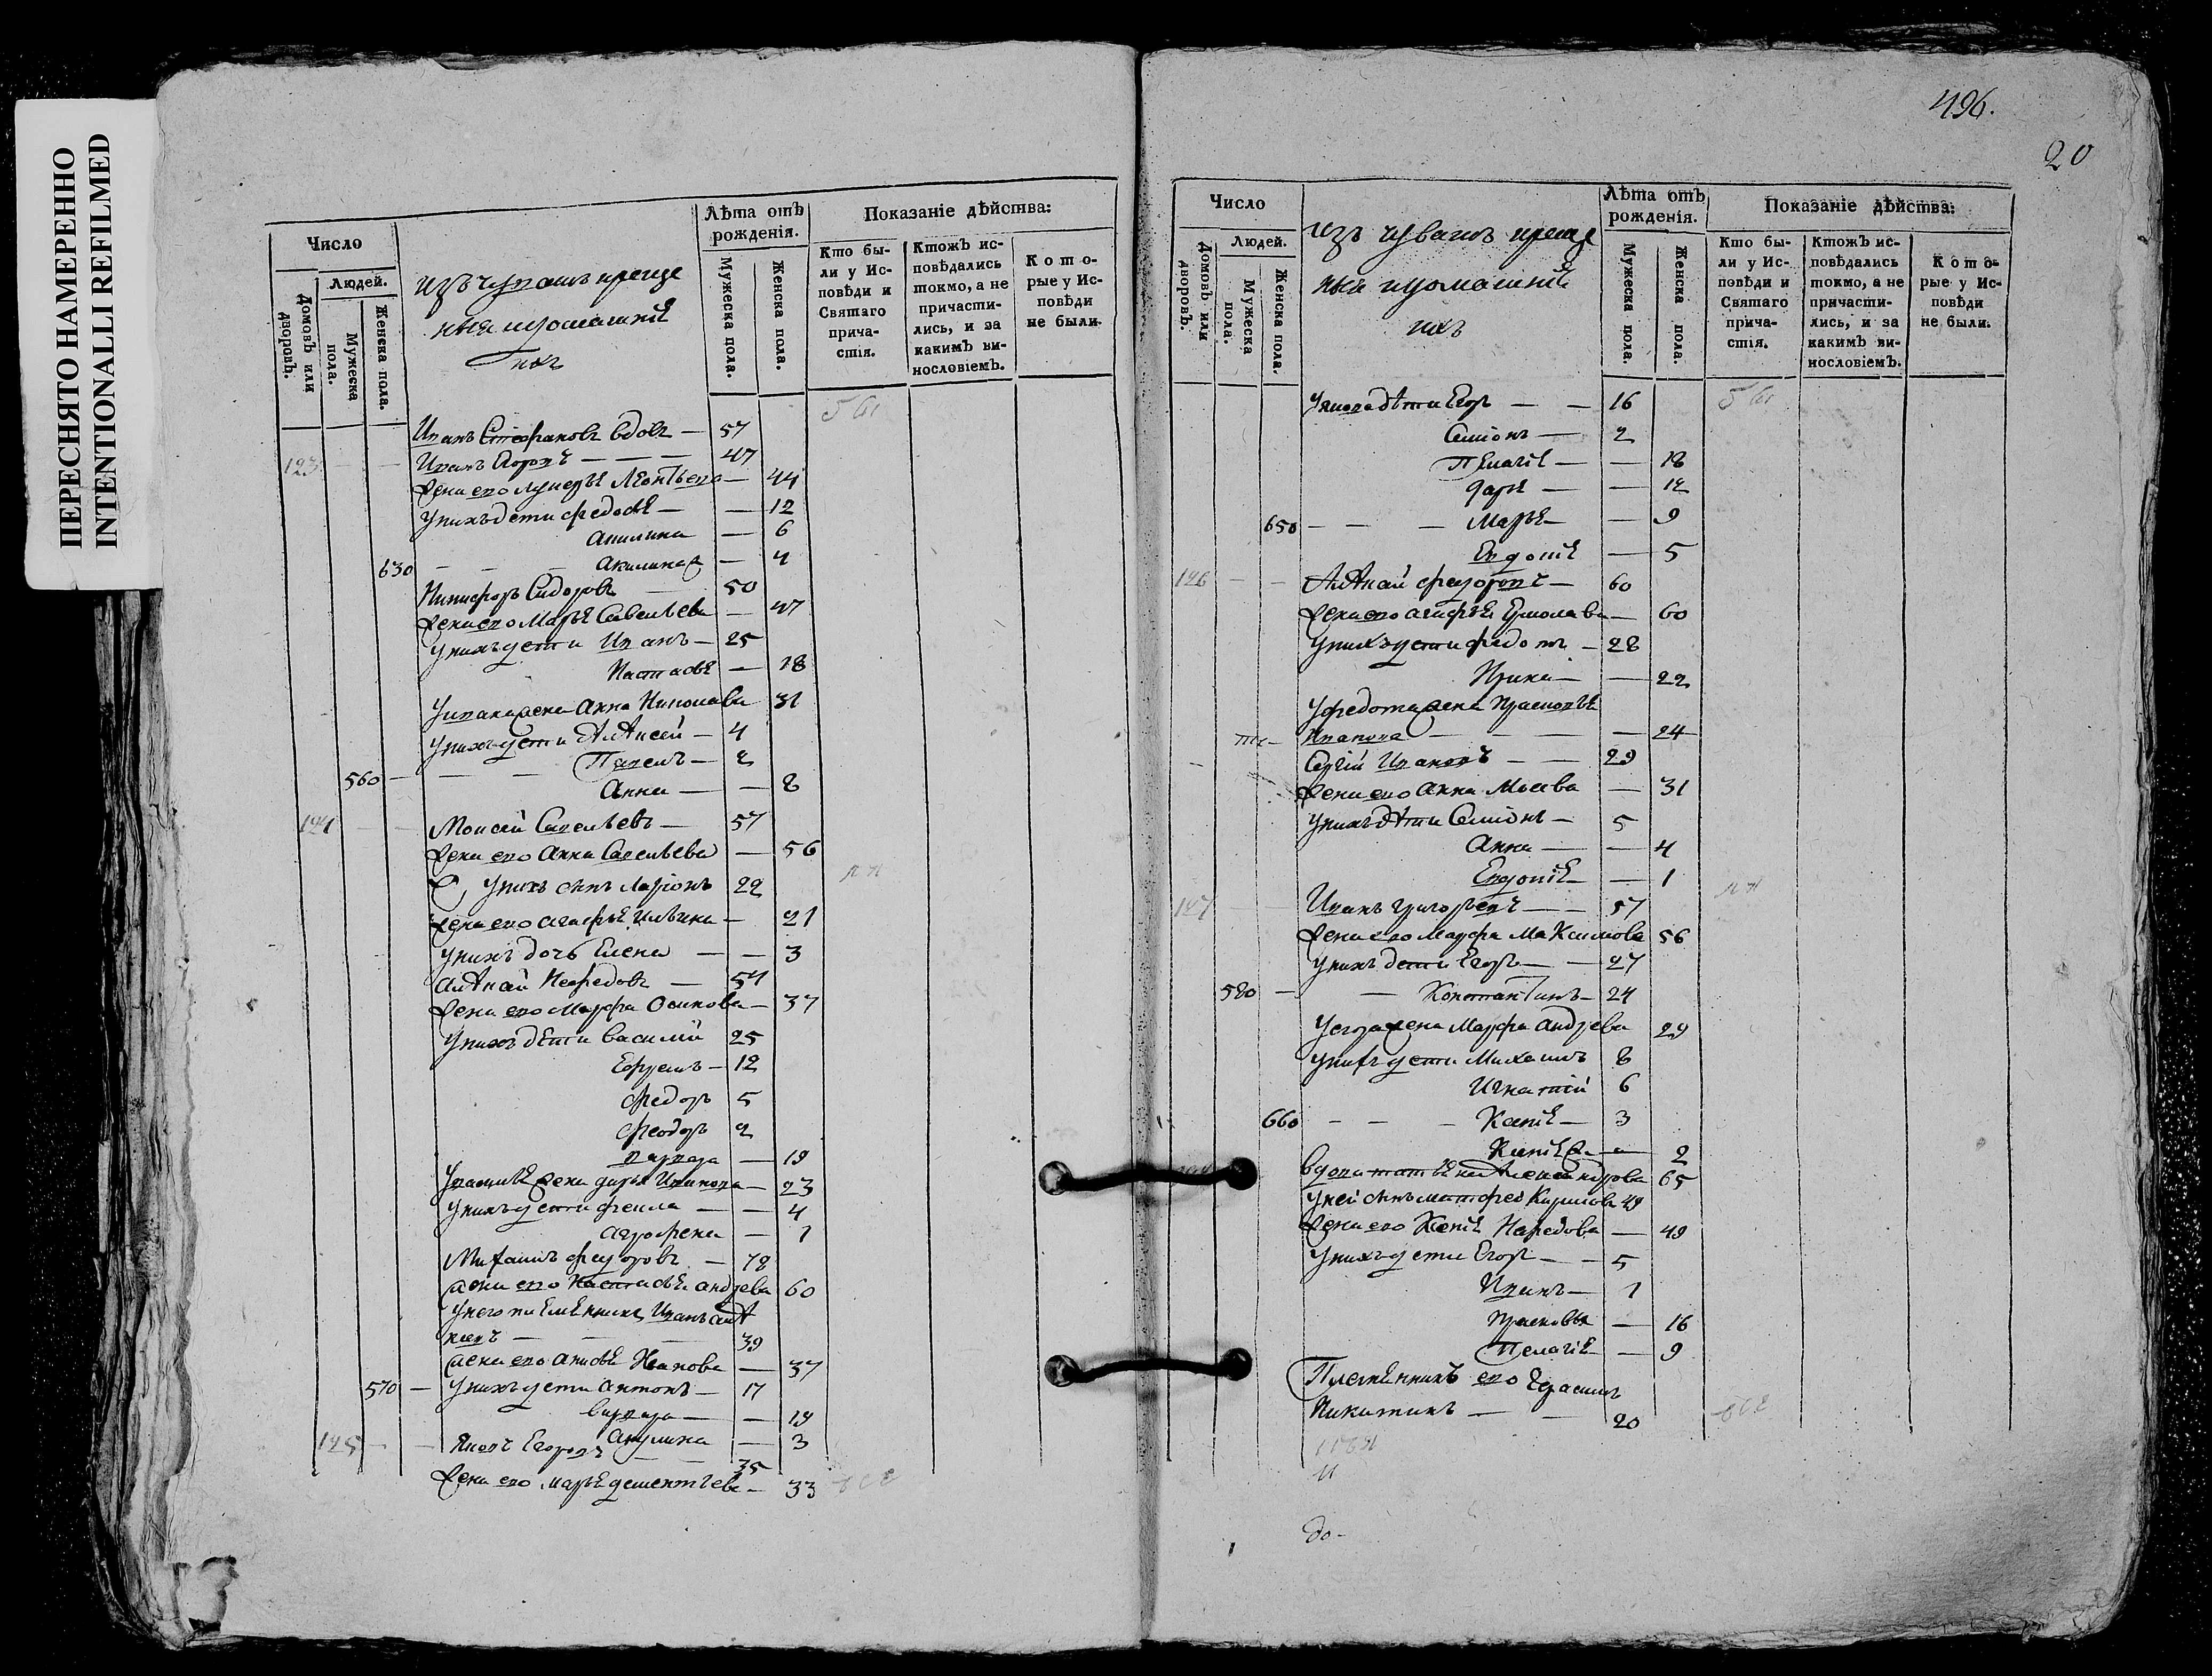 ПЕРЕСНЯТО НАМЕРЕННО
INTENTIONALLI REFILMED
Число
Людей.
Домовъ или дворовъ.
Мужеска пола.
Женска пола.
изъ чувашъ креще
ныя и домашнiе
ихъ
Лѣта отъ рожденiя.
Мужеска пола.
Женска пола.
Показанiе дѣйства:
Кто были у Исповѣди и Святаго причастiя.
Ктожъ исповѣдались токмо, а не причастились, и за какимъ винословiемъ.
Которые у Исповѣди не были.
Иванъ Стефановъ вдовъ — 57
123 Иванъ — — — 47
Жена его Леонтьева — 44
У нихъ дети Федосья — — 12
Акилина — 6
630 — — — Акилина — 4
Никифоръ Сидоровъ 50
Жена его Марья Савельева — 47
У нихъ дети Иванъ — 25
Настасья — 18
У Ивана жена Анна Николаева 31
У нихъ дети Алѣксей — 4
Павелъ — 2
560 — — — Анна — — 8
124 — — Моисей Савельевъ — 57
Жена его Анна Савельева — 56
У нихъ сынъ Ларiонъ 22
Жена его Агафья Ильина — 21
У нихъ дочь Елена — — 3
Нефедовъ — 54
Жена его Марфа Осипова — 37
У нихъ дети Василiй 25
Ефремъ — 12
Федоръ 5
Феодоръ 2
Варвара — 19
У Василья жена Дарья Иванова — 23
У нихъ дети Фекла — — 4
Аграфена — 1
Михаилъ Федоровъ — 78
Жена его Настасья Андрева 60
У него племянникъ Иванъ
— — — 39
Жена его Анисья Иванова — 37
570 — У нихъ дети Антонъ — 17
Варвара — — 19
Акулина — 3
125 — — Яковъ Егоровъ — — 35
Жена его Марья Дементьева — 33
496.
20
Число
Людей.
Домовъ или дворовъ.
Мужеска пола.
Женска пола.
изъ чувашъ креще
ныя и домашнiе
ихъ
Лѣта отъ рожденiя.
Мужеска пола.
Женска пола.
Показанiе дѣйства:
Кто были у Исповѣди и Святаго причастiя.
Ктожъ исповѣдались токмо, а не причастились, и за какимъ винословiемъ.
Которые у Исповѣди не были.
У Якова дѣти Егоръ — — 16
Семiонъ — 2
Пелагiя — — 18
Дарья — — 12
650 — — — Марья — — 9
Евдокiя — 5
126 — — Федоровъ — 60
Жена его Агафья Ермолаева — 60
У нихъ дети Федотъ — 28
Ирина — — 22
У Федота жена Прасковья
Иванова — — — — 24
Сергiй Ивановъ — — 29
Жена его Анна — 31
У нихъ дѣти Семiонъ — 5
Анна — — 4
Евдокiя — — 1
127 — — Иванъ Григорьевъ — — 57
Жена его Марфа Максимова 56
У нихъ дети Егоръ — — 27
580 — — Константинъ — 24
У Егора жена Марфа Андрева 29
У нихъ дети Михаилъ 8
Игнатiй 6
660 — — — 3
— 2
Вдова Татьяна Александрова 65
У ней сынъ Кирилов 49
Жена его Нефедова — 49
У нихъ дети Егоръ — — 5
Иванъ — 1
Прасковья — 16
Пелагiя — 9
Племянникъ его Герасимъ
Никитинъ — — 20
до-